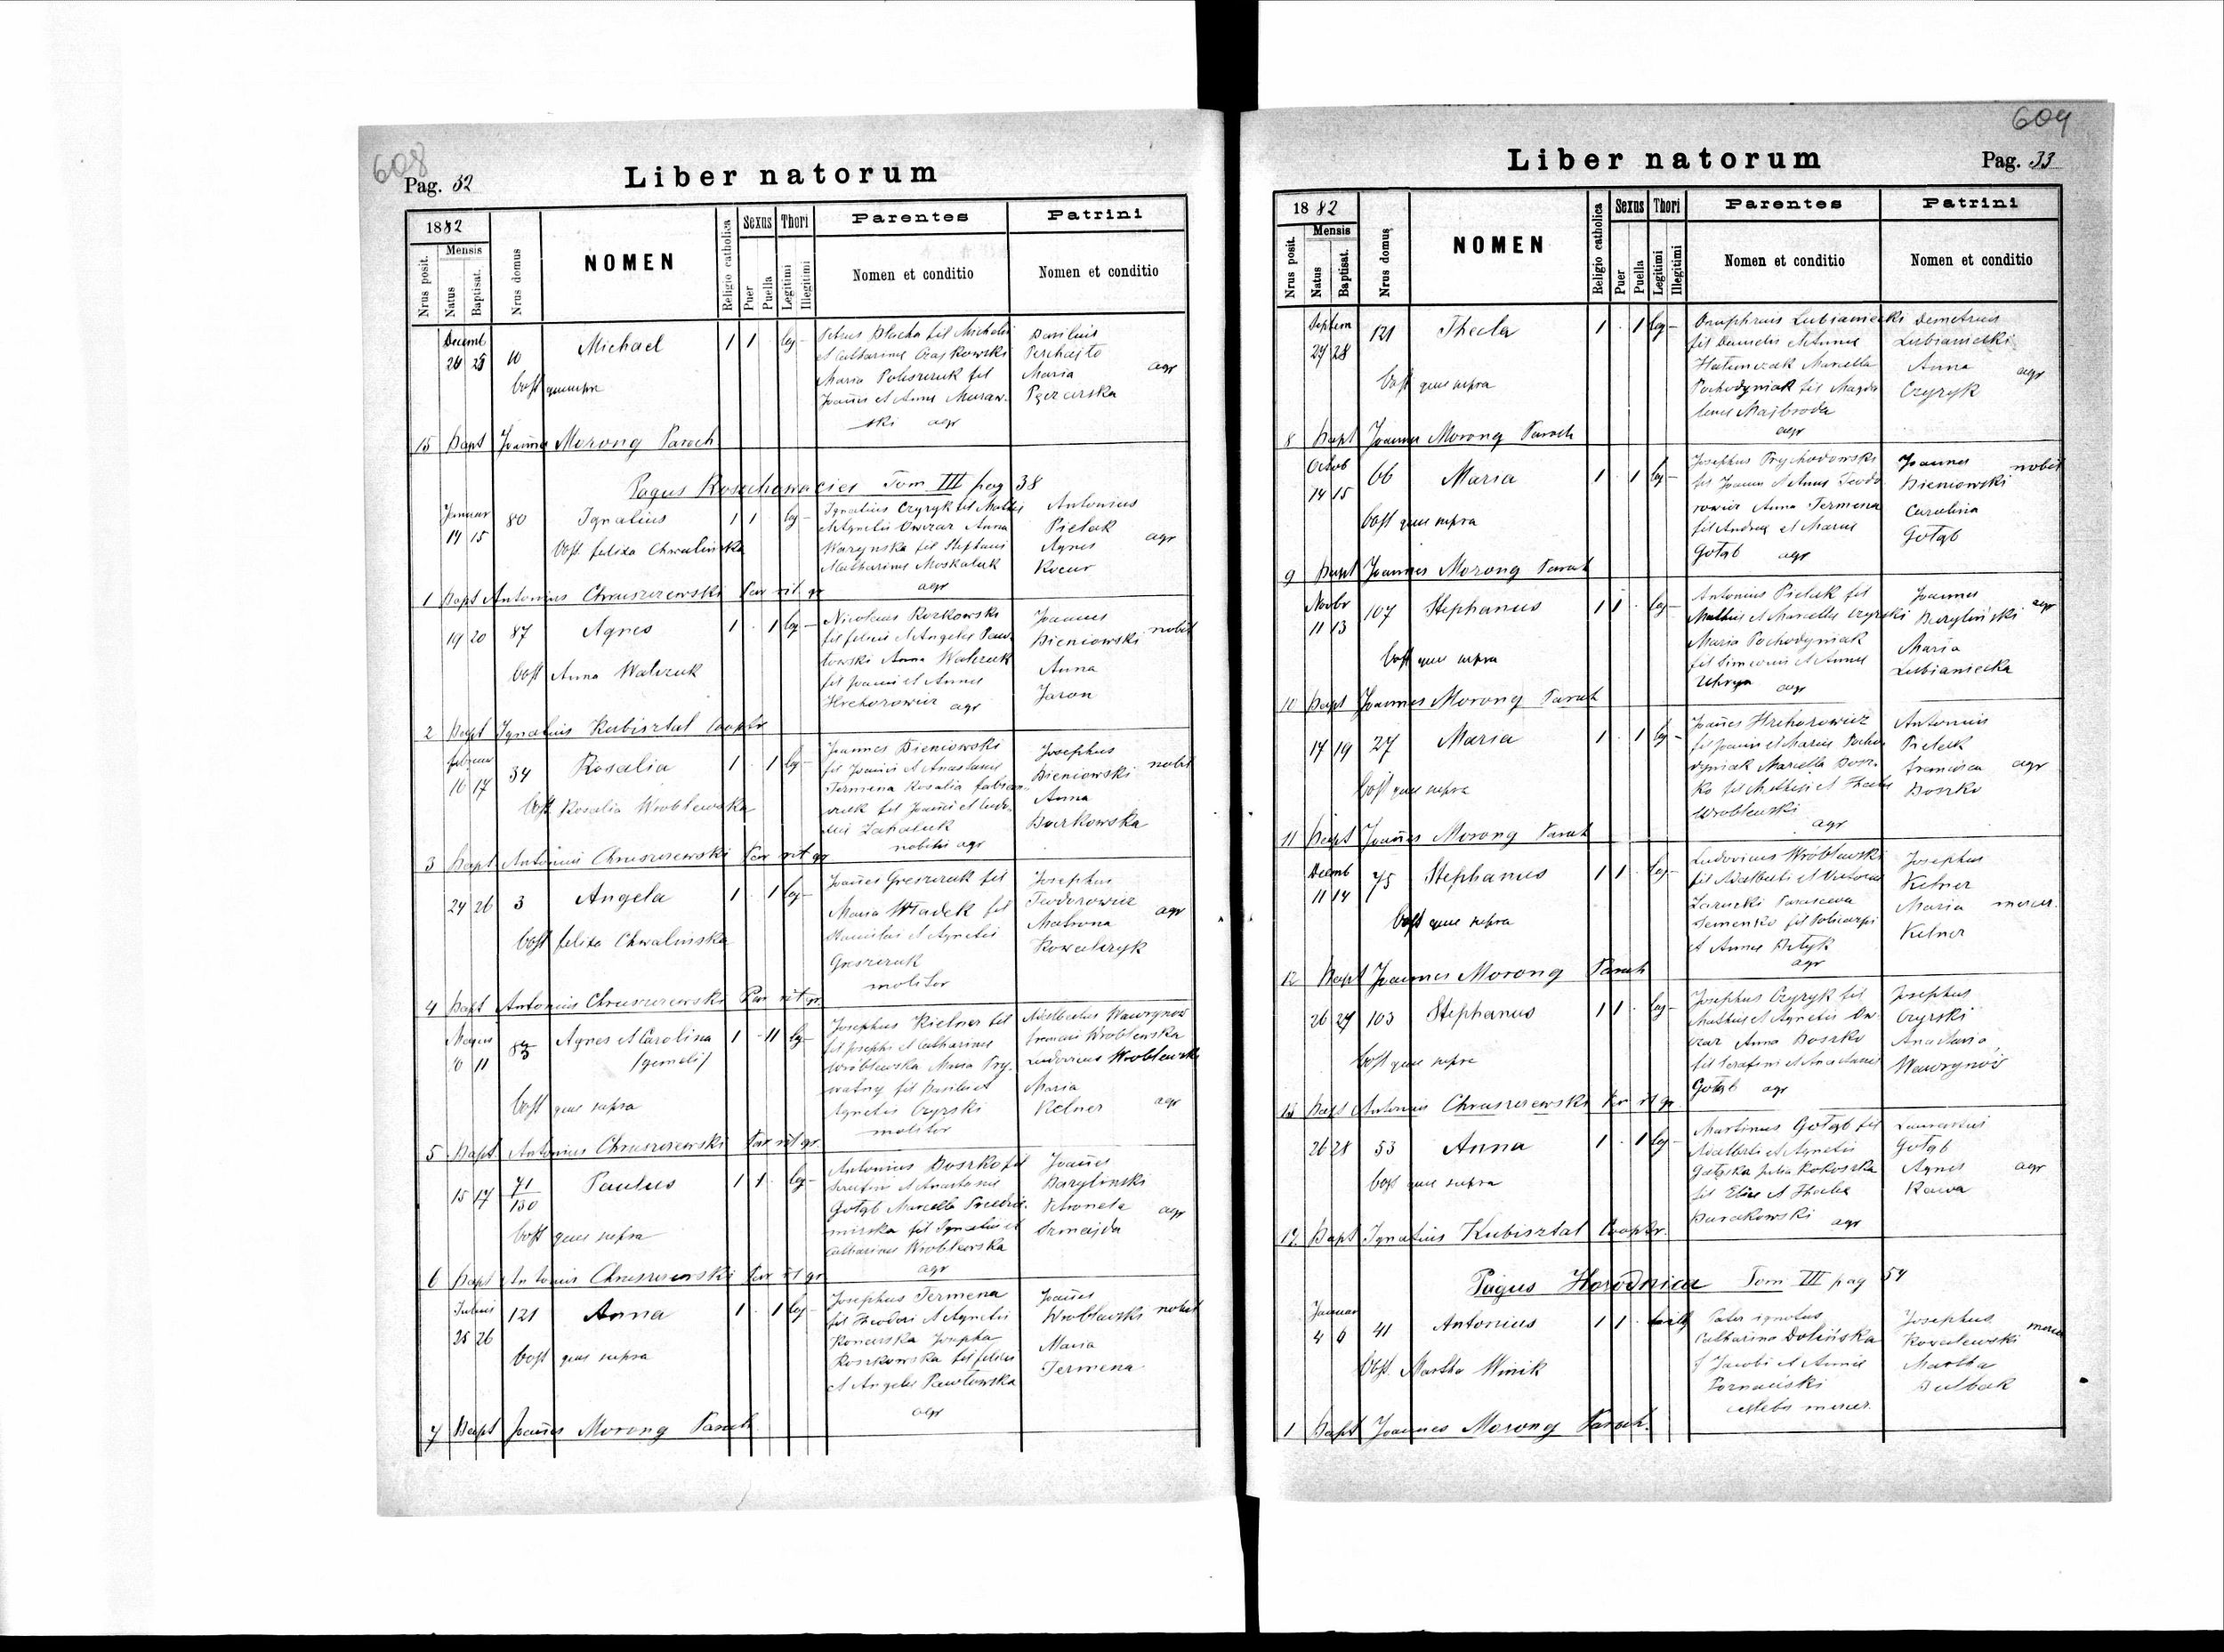 608
Pag. 32
Liber natorum
1882
Nrus posit.
Mensis
Natus
Baptisat.
Nrus domus
NOMEN
Religio catholica
Sexus
Puer
Puella
Thori
Legitimi
Illegitimi
Parentes
Nomen et conditio
Patrini
Nomen et conditio
Decemb
24 25 10 Michael 1 1 leg —
Petrus Blacha fil Michaelis
et Catharinae Czajkowski
Maria Poliszczuk fil
Joannis et Annae Muraw-
ski agr
Basilius
Perchajto
Maria agr
Pęczarska
Obst quae supra
15 Bapt Joannes Morong Paroch
Pagus Roschowacies Tom III pag 38
Januar
14 15 80 Ignatius 1 1 leg —
Ignatius Czyryk fil Mathei
et Agnetis Owczar Anna
Warynska fil Stephani
et Catharinae Moskaluk
agr
Antonius
Pielak
Agnes agr
Kocur
Obst. felixa Chwalinska
1 Bapt Antonius Chruszczewski Par rit. gr
19 20 87 Agnes 1 1 leg —
Nicolaus Rozkowski
fil felicis et Angelae Paw-
łowski Anna Walczuk
fil Joannis et Annae
Hrehorowicz agr
Joannes
Bieniowski nobil
Anna
Jaron
Obst Anna Walczuk
2 Bapt Ignatius Kubisztal Cooptr
februar
16 17 34 Rosalia 1 1 leg —
Joannes Bieniowski
fil Joannis et Anastasiae
Termena Rosalia
nobiles agr
Josephus
Bieniowski nobil
Anna
Borkowska
Obst Rosalia Wroblewska
3 Bapt Antonius Chruszczewski Par rit gr
24 26 3 Angela 1 1 leg —
Joannes Greszczuk fil
Maria Władek fil
Stanislai et Agnetis
Greszczuk
molitor
Josephus
Teodorowicz
Matrona agr
Kowalczyk
Obst felixa Chwalinska
4 Bapt Antonius Chruszczewski Par rit gr
Majus
10 11 83 Agnes et Carolina 1 11 leg —
/gemelli/
Josephus Kielner fil
fil Josephi et Catharinae
Wróblewska Maria Pry-
watny fil Basilii et
Agnetis Czyrski
molitor
Adalbertus Wawrynow
Wroblewska
Ludovicus Wroblewski
Maria
Kelner agr
Obst quae supra
5 Bapt. Antonius Chruszczewski Par rit gr
15 17 71/130 Paulus 1 1 leg —
Antonius Boszko fil
Serafini et Anastasiae
Gołąb Marcella
mirska fil Ignatii et
Catharinae Wroblewska
agr
Joannes
Barylinski
Petronela agr
Szmajda
Obst quae supra
6 Bapt Antonius Chruszczewski Par rit gr
Julius
25 26 121 Anna 1 1 leg —
Josephus Termena
fil Theodori et Agnetis
Konarska Josepha
Roszkowska fil felicis
et Angelae Pawłowska
agr
Joannes
Wroblewski nobil
Maria
Termena
Obst quae supra
7 Bapt Joannes Morong Paroch
609
Liber natorum
Pag. 33
1882
Nrus posit.
Mensis
Natus
Baptisat.
Nrus domus
NOMEN
Religio catholica
Sexus
Puer
Puella
Thori
Legitimi
Illegitimi
Parentes
Nomen et conditio
Patrini
Nomen et conditio
Septem
27 28 121 Thecla 1 1 leg —
Onuphrius Lubianiecki
fil Danielis et Annae
Marcella
Pochodyniak fil Magda
lenae Majbroda
agr
Demetrius
Lubianiecki
Anna agr
Czyryk
Obst quae supra
8 Bapt Joannes Morong Paroch
Octob
14 15 66 Maria 1 1 leg —
Josephus Prychodowski
fil Joannis et Annae Teodo
rowicz Anna Termena
fil Andreae et Mariae
Gołąb agr
Joannes nobil
Bieniowski
Carolina
Gołąb
Obst quae supra
9 Bapt Joannes Morong Paroch
Novbr
11 13 107 Stephanus 1 1 leg —
Antonius Pieluk fil
Mathiae et Marcellae Czyrski
Maria Pochodyniak
fil Simeonis et Annae
Uhryn agr
Joannes
Baryliński agr
Maria
Lubianiecka
Obst quae supra
10 Bapt Joannes Morong Paroch
17 19 27 Maria 1 1 leg —
Joannes Hrehorowicz
fil Joannis et Mariae Pocho
dyniak Marcella Bosz-
ko fil Mathiae et Theclae
Wroblewski
agr
Antonius
Pielak
francisca agr
Boszko
Obst quae supra
11 Bapt Joannes Morong Paroch
Decemb
11 14 75 Stephanus 1 1 leg —
Ludovicus Wróblewski
fil Adalberti et Victoriae
Zarucki Parasceva
Semenko fil Policarpi
et Annae
agr
Josephus
Kelner
Maria mercer.
Kelner
Obst quae supra
12 Bapt Joannes Morong Paroch
26 27 103 Stephanus 1 1 leg —
Josephus Czyryk fil
Mathiae et Agnetis Ow-
czar Anna Boszko
fil Serafini et Anastasiae
Gołąb agr
Josephus
Czyrski
Anastasia
Wawrynów
Obst quae supra
13 Bapt Antonius Chruszczewski Par rit gr
26 28 53 Anna 1 1 leg —
Martinus Gołąb fil
Adalberti et Agnetis
Julia Kokoszka
fil Eliae et Theclae
Burakowski agr
Laurentius
Gołąb
Agnes agr
Kawa
Obst quae supra
14 Bapt Ignatius Kubisztal Cooptr.
Pagus Horodnica Tom III pag 54
Januar
4 6 41 Antonius 1 1 illg
Pater ignotus
Catharina Dolińska
f Jacobi et Annae
Poznański
caelebs mercer
Josephus
Kowalewski mercer
Martha
Dulbak
Obst. Martha Winik
1 Bapt Joannes Morong Paroch.